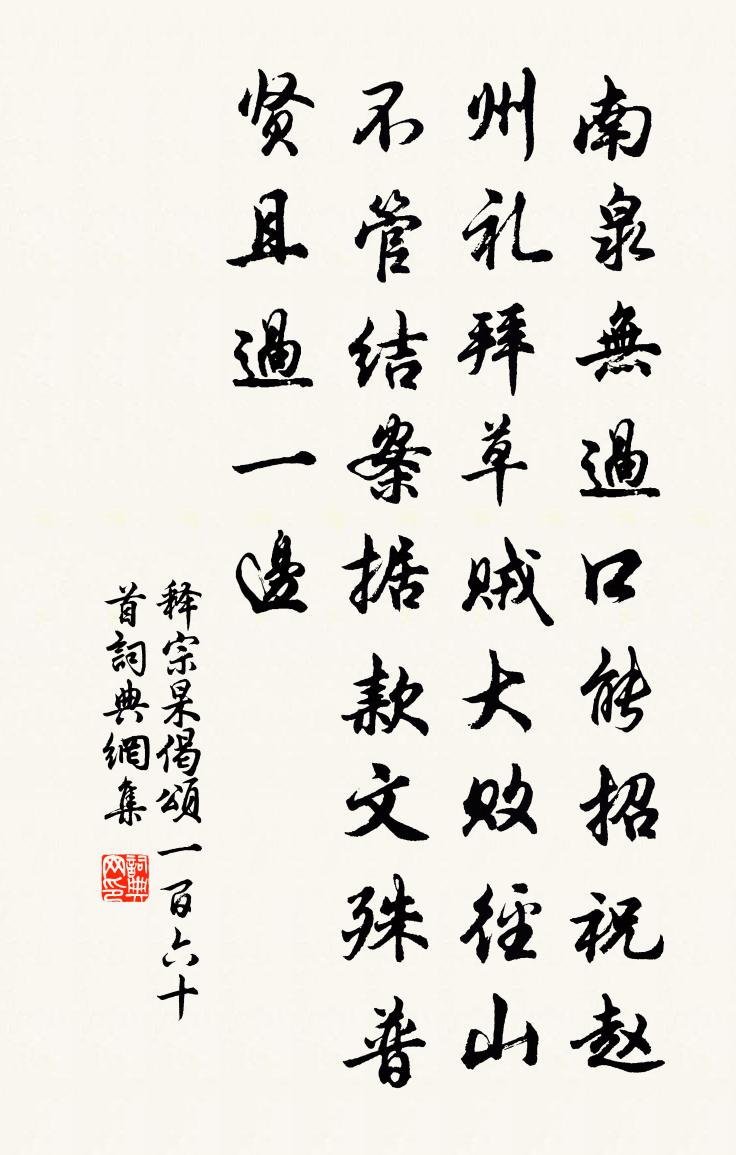 南泉無過口能招祝赵
州礼拜草贼大败径山
不管结案据款文殊普
贤且過一邊
释宗杲偈颂一百六十
首詞典網集
詞典网印